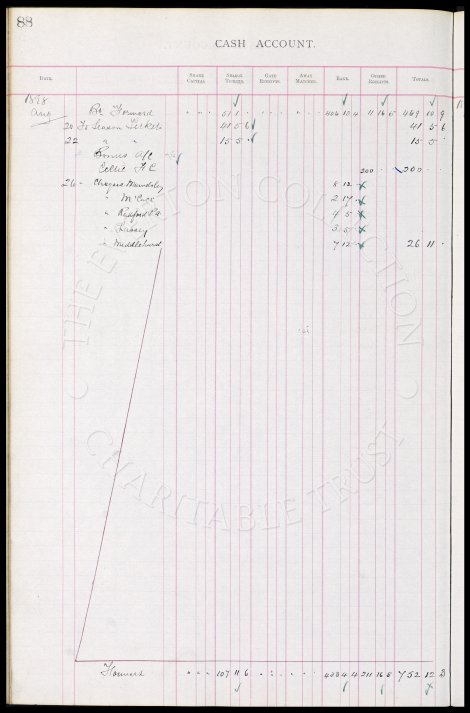 88
CASH ACCOUNT.
DATE. SHARE CAPITAL. SEASON TICKETS. GATE RECEIPTS. AWAY MATCHES. BANK. OTHER RECEIPTS. TOTALS.
1898
Aug Bt Forward 51 1 406 10 4 11 16 5 469 10 9
20 To Season Tickets 41 5 6 41 5 6
22 " " 15 5 15 5
Bonus A/c
Celtic F.C. 200 200
26 Cheques 8 12
" 2 17
" 4 5
" 3 5
" Middlehurst 7 12 26 11
THE EVERTON COLLECTION
CHARITABLE TRUST
Forward 107 11 6 433 4 4 211 16 5 752 12 3